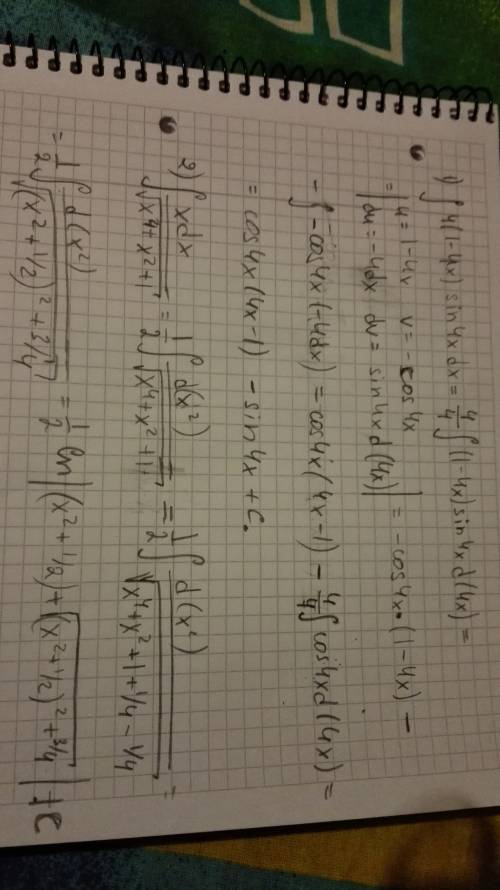 1) ∫ 4(1-4x) sin4xdx = 4/4 ∫ (1-4x) sin4x d(4x) =
= | u = 1-4x v = -cos4x
du = -4dx dv = sin4x d(4x) | = -cos4x·(1-4x) -
- ∫ -cos4x(-4dx) = cos4x(4x-1) - 4/4 ∫ cos4x d(4x) =
= cos4x(4x-1) - sin4x + C.
2) ∫ xdx/√(x⁴+x²+1) = 1/2 ∫ d(x²)/√(x⁴+x²+1) = 1/2 ∫ d(x²)/√(x⁴+x²+1+1/4-1/4) =
= 1/2 ∫ d(x²)/√((x²+1/2)²+3/4) = 1/2 ln |(x²+1/2)+√((x²+1/2)²+3/4)| + C